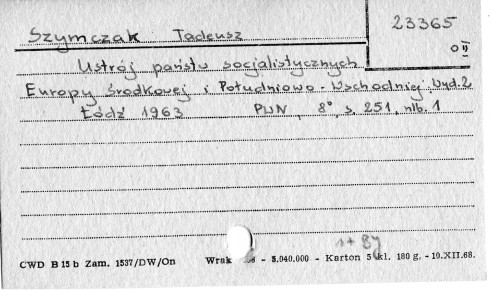 23365
Szymczak Tadeusz
Ustrój państw socjalistycznych
Europy środkowej i Południowo-Wschodniej. Wyd. 2
Łódź 1963 PWN, 8°, s. 251, nlb. 1
1+ 8y
CWD B 15 b Zam. 1537/DW/On Wrak - 5.040.000 - Karton 5 kl. 180 g. - 10.XII.68.